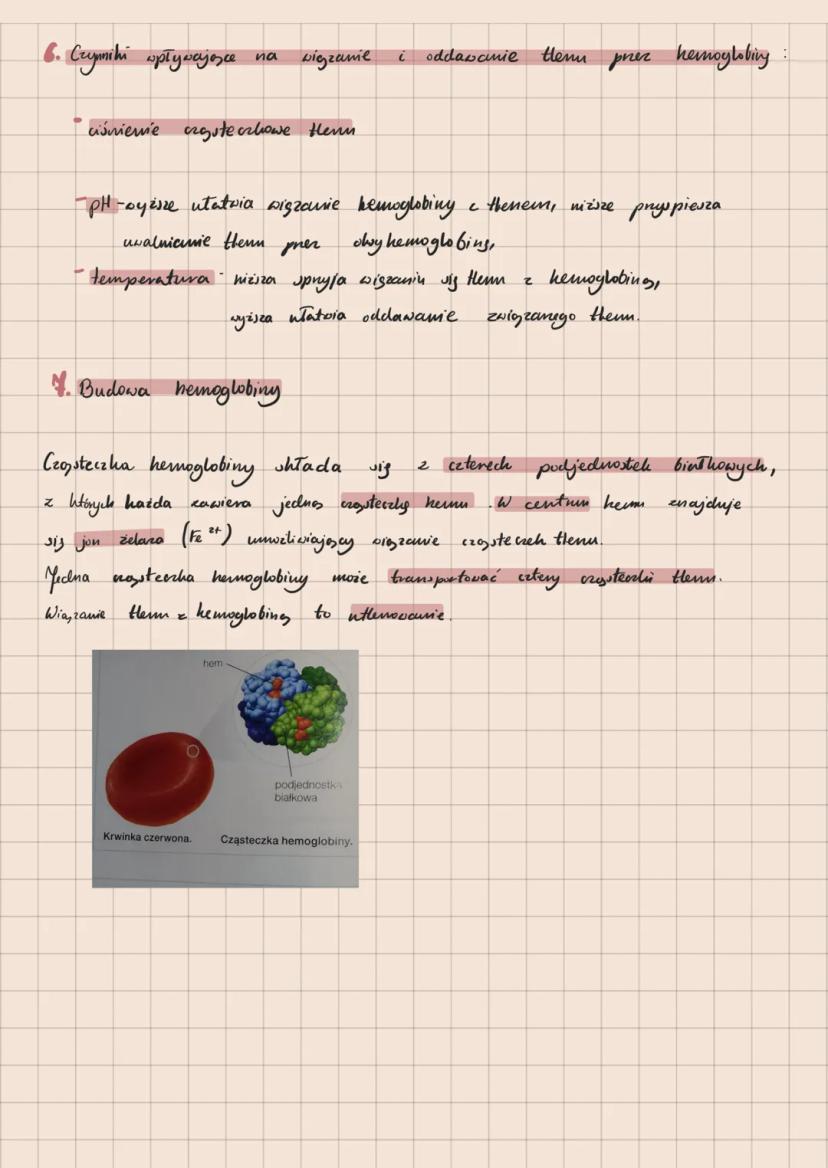 6. Czynniki wpływające na wiązanie i oddawanie tlenu przez hemoglobinę :
- ciśnienie cząsteczkowe tlenu
- pH - wyższe ułatwia wiązanie hemoglobiny z tlenem, niższe przyspiesza
uwalnianie tlenu przez oksyhemoglobinę
- temperatura - niższa sprzyja wiązaniu się tlenu z hemoglobiną,
wyższa ułatwia oddawanie związanego tlenu.
7. Budowa hemoglobiny
Cząsteczka hemoglobiny składa się z czterech podjednostek białkowych,
z których każda zawiera jedną cząsteczkę hemu. W centrum hemu znajduje
się jon żelaza (Fe 2+) umożliwiający wiązanie cząsteczek tlenu.
Jedna cząsteczka hemoglobiny może transportować cztery cząsteczki tlenu.
Wiązanie tlenu z hemoglobiną to utlenowanie.
hem
podjednostka
białkowa
Krwinka czerwona. Cząsteczka hemoglobiny.